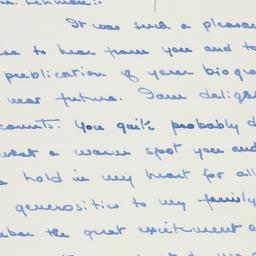 It was such a pleasu
to hear from you and to
publication of your biogra
near future. I am delig
counts. You quite probably d
what a warm spot you and
hold in my heart for all
generosities to my family
the great excitement a